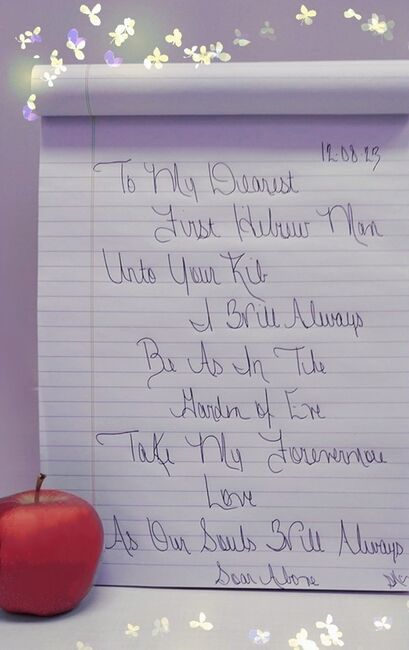 12.08.23
To My Dearest
First Hebrew Man
Unto Your Rib
I Will Always
Be As In The
Garden of Eve
Take My Forevermore
Love
As Our Souls Will Always
Soar Above